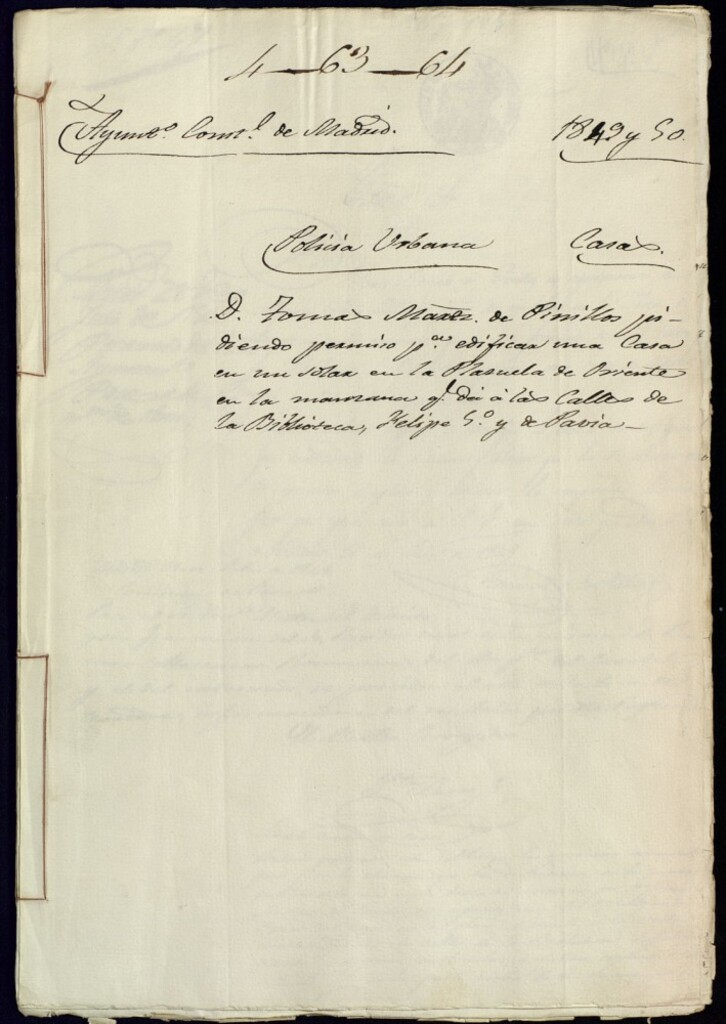 4—63—64
Ayunto. Constl. de Madrid.
1849 y 50.
Policia Urbana
Casas.
D. Tomas Martz. de Pinillos pi-
diendo permiso pa. edificar una Casa
en un solar en la Plazuela de Oriente
en la manzana q. dá á las Calles de
la Biblioteca, Felipe 5.º y de Pavia—